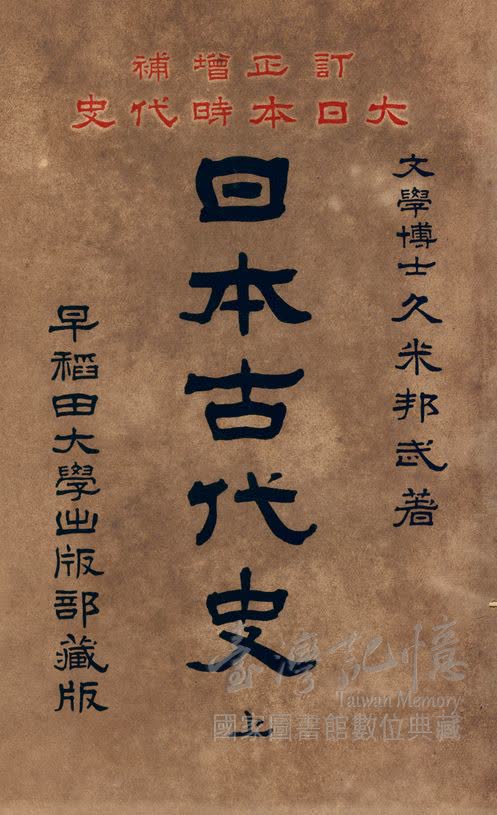 訂正增補
大日本時代史
文學博士久米邦武著
日本古代史 上
早稻田大學出版部藏版
臺灣記憶
Taiwan Memory
國家圖書館數位典藏